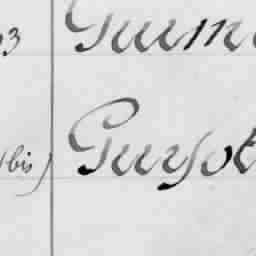 93 Guim
(bis) Guyot